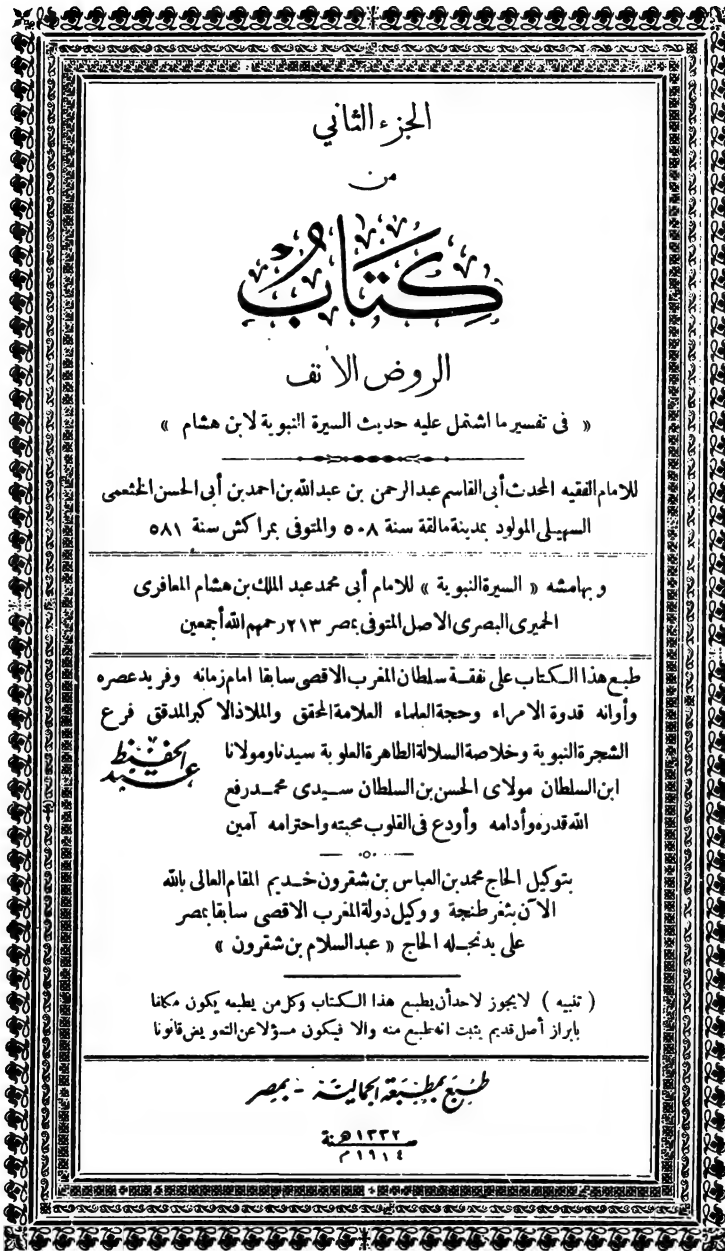 الجزء الثاني
من
كتاب
الروض الأنف
« فى تفسير ما اشتمل عليه حديث السيرة النبوية لابن هشام »
للامام الفقيه المحدث أبى القاسم عبد الرحمن بن عبد الله بن احمد بن أبى الحسن الخثعمى
السهيلى المولود بمدينة مالقة سنة ٥٠٨ والمتوفى بمراكش سنة ٥٨١
وبهامشه « السيرة النبوية » للامام أبى محمد عبد الملك بن هشام المعافرى
الحميرى البصرى الاصل المتوفى بمصر ٢١٣ رحمهم الله أجمعين
طبع هذا الكتاب على نفقة سلطان المغرب الاقصى سابقا امام زمانه وفريد عصره
وأوانه قدوة الامراء وحجة العلماء العلامة المحقق والملاذ الاكبر المدقق فرع
الشجرة النبوية وخلاصة السلالة الطاهرة العلوية سيدنا ومولانا
عبد الحفيظ
ابن السلطان مولاى الحسن بن السلطان سيدى محمد رفع
الله قدره وأدامه وأودع فى القلوب محبته واحترامه آمين
بتوكيل الحاج محمد بن العباس بن شقرون خديم المقام العالى بالله
الآن بثغر طنجة ووكيل دولة المغرب الاقصى سابقا بمصر
على يد نجله الحاج « عبد السلام بن شقرون »
( تنبيه ) لا يجوز لاحد أن يطبع هذا الكتاب وكل من يطبعه يكون مكلفا
بابراز أصل قديم يثبت انه طبع منه والا فيكون مسؤلا عن التعويض قانونا
طبع بمطبعة الجمالية - بمصر
سنة ١٣٣٢ هـ
١٩١٤ م